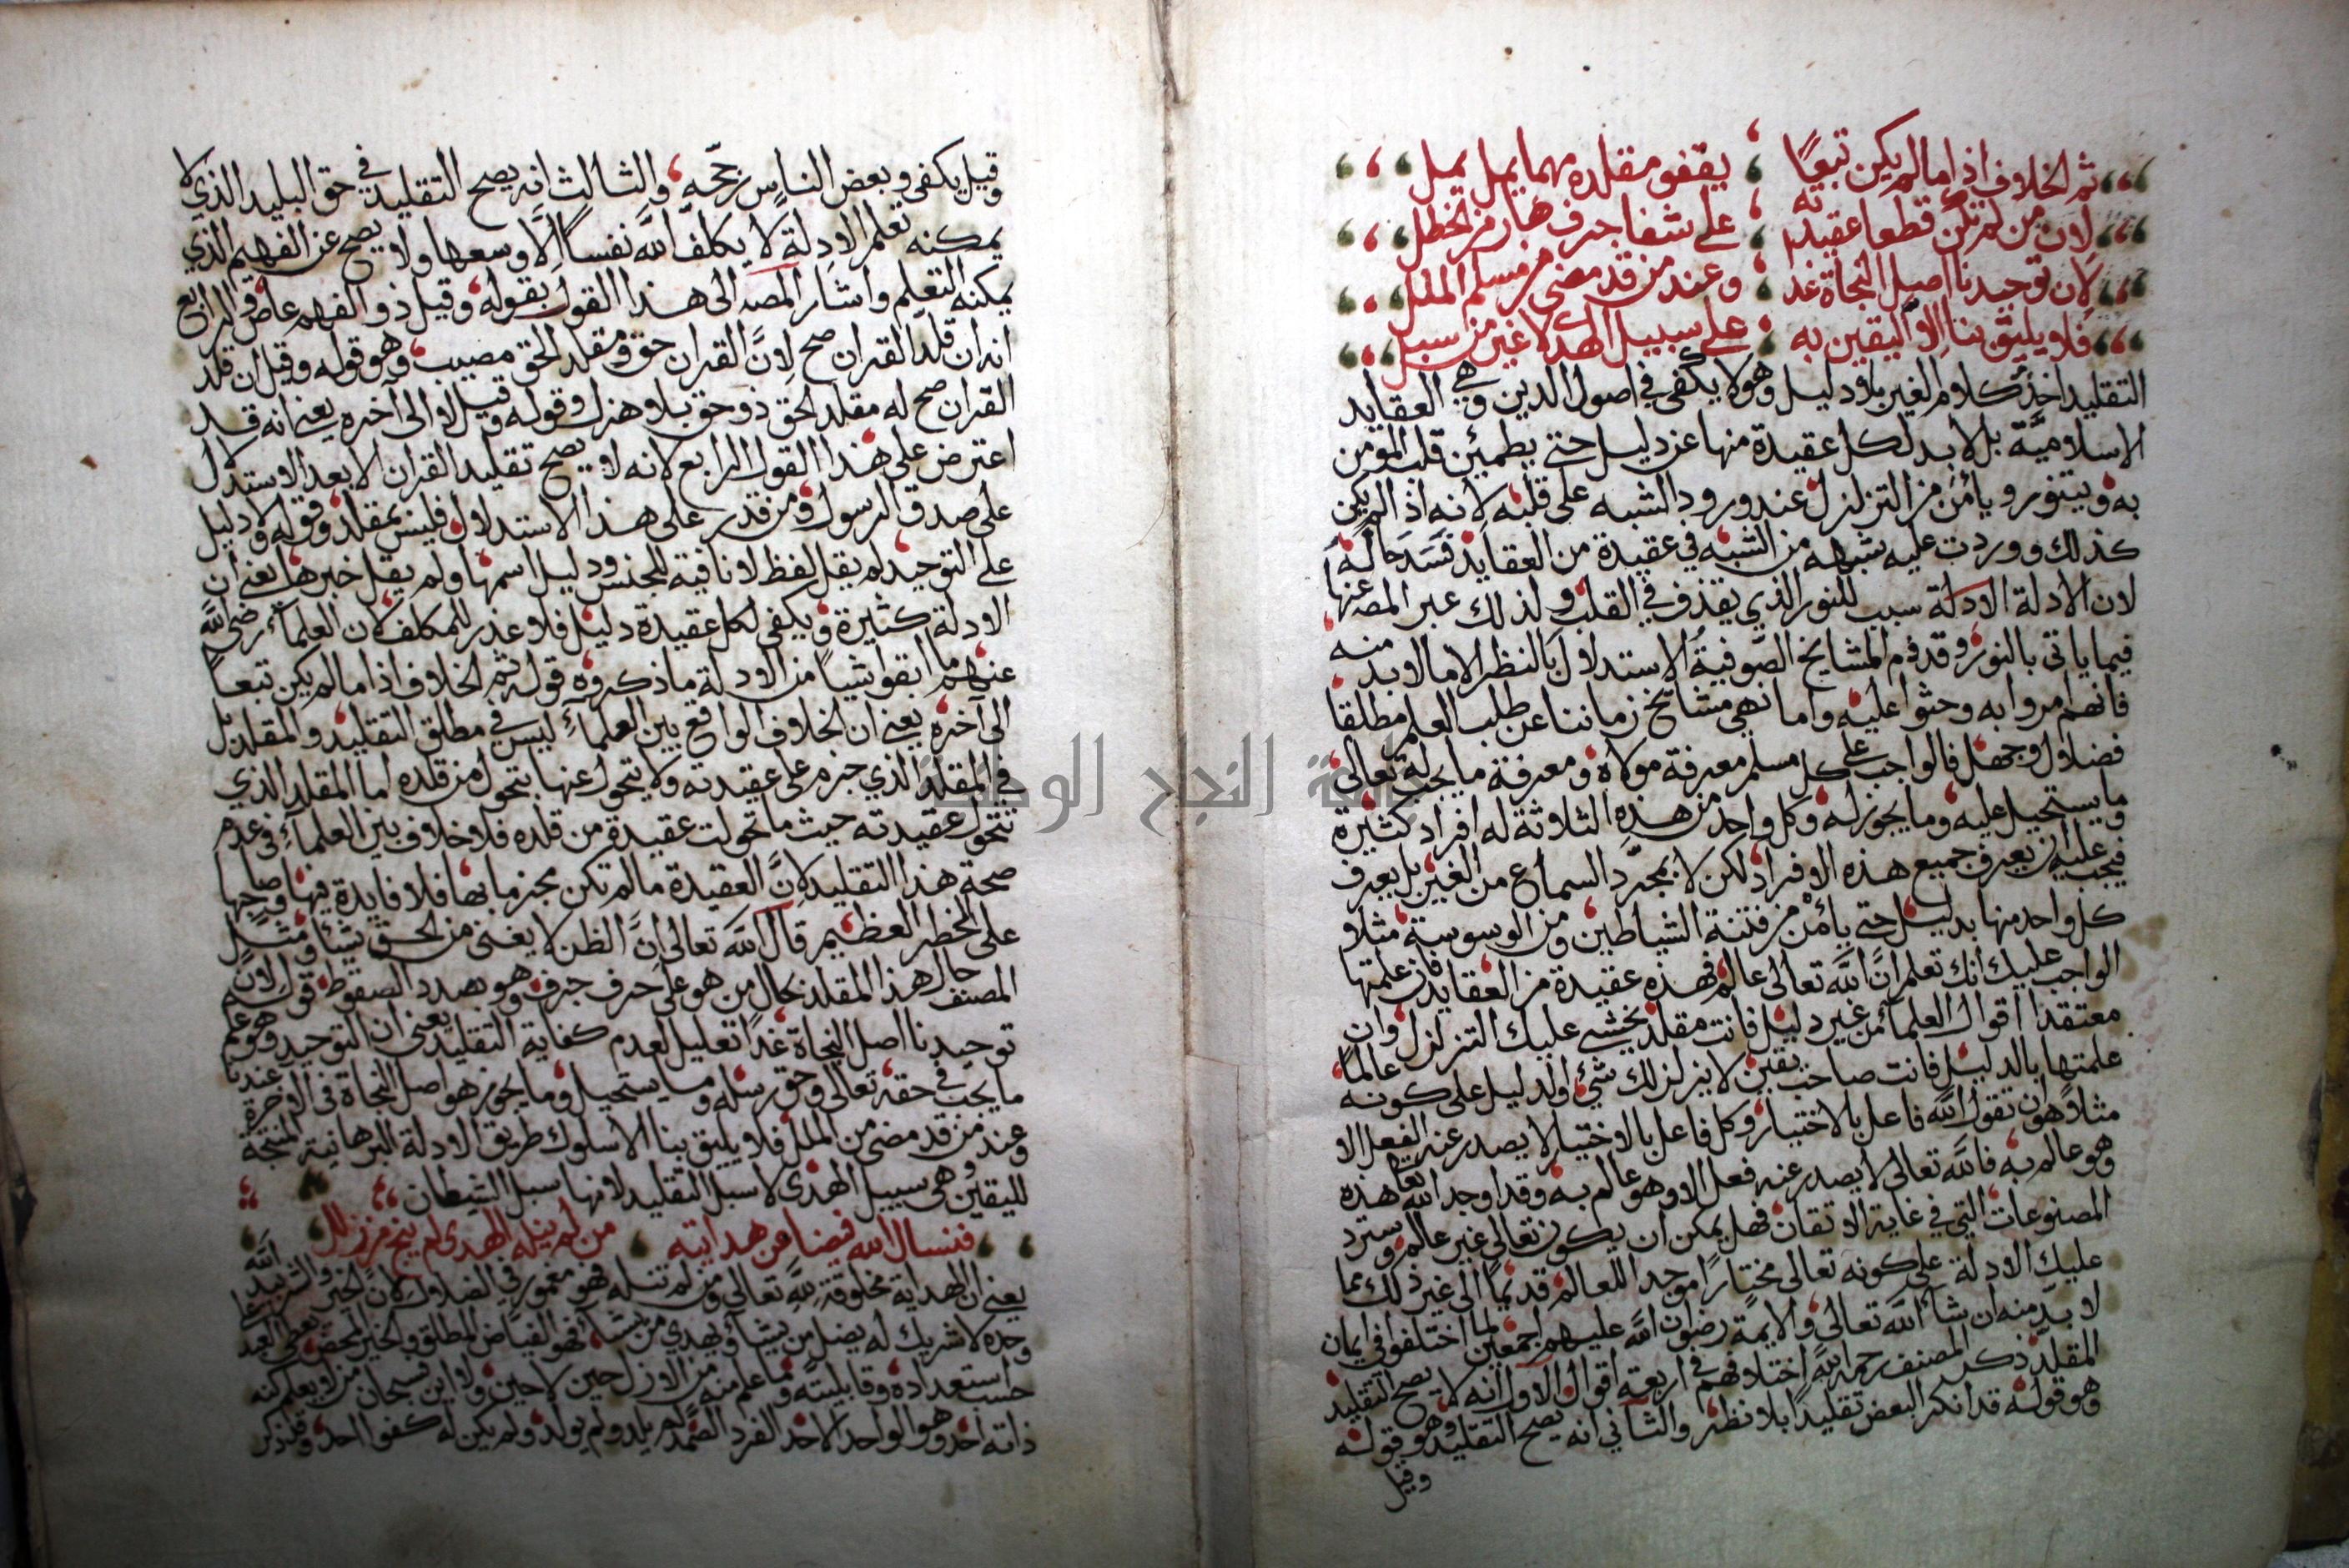 ثم الخلاف اذا مالم يكن تبعًا يقفو مقلده مهما يمل يمل
لان من لم تكن قطعا عقيدته على شفا جرف هار من الخطل
لان توحيدنا اصل النجاة غدا وعند من قد مضى من مسلم الملل
فلا يليق بنا الا اليقين به على سبيل الهدى لا غير من سبل
التقليد اخذ كلام الغير بلا دليل وهو لا يكفى في اصول الدين وهي العقايد
الاسلاميّة بل لا بد لكل عقيدة منها عن دليل حتى يطمئن قلب المؤمن
به ويتنور ويأمن من التزلزل عند ورود الشبه على قلبه لانه اذا لم يكن
كذلك ووردت عليه شبهه من الشبه في عقيدة من العقايد فسد حاله
لان الادلة سبب للنور الذي يقذف في القلب ولذلك عبر المصه عنها
فيما ياتى بالنور وقد ذم المشايخ الصوفية الاستدلال بالنظر الا ما لا بد منه
فانهم امروا به وحثوا عليه واما نهي مشائخ زماننا عن طلب العلم مطلقا
فضلال وجهل فالواجب على كل مسلم معرفة مولاه ومعرفة ما يجب له تعالى
وما يستحيل عليه وما يجوز له وكل واحد من هذه الثلاثة له افراد كثيرة
فيجب عليه ان يعرف جميع هذه الافراد لكن لا بمجرّد السماع من الغير بل يعرف
كل واحد منها بدليل حتى يأمن من فتنة الشياطين ومن الوسوسة مثلا
الواجب عليك انك تعلم انّ الله تعالى عالم فهذه عقيدة من العقايد فان علمتها
معتقدا اقوال العلماء من غير دليل فانت مقلد يخشى عليك التزلزل وان
علمتها بالدليل فانت صاحب يقين لا يزلزلك شيء والدليل على كونه عالمًا
مثلا هو ان تقول الله فاعل بالاختيار وكل فاعل بالاختيار لا يصدر عنه الفعل الا
وهو عالم به فالله تعالى لا يصدر عنه فعل الا وهو عالم به وقد اوجد الله تعا هذه
المصنوعات التي في غاية الاتقان فهل يمكن ان يكون تعالى غير عالم وسترد
عليك الادلة على كونه تعالى مختارًا موجد اللعالم قديمًا الى غير ذلك مما
لا بدّ منه ان شاء الله تعالى والايمة رضوان الله عليهم اجمعين لما اختلفوا في ايمان
المقلد ذكر المصنف رحمه الله اختلافهم في اربعة اقوال الاول انه لا يصح التقليد
وهو قوله قد انكر البعض تقليدًا بلا نظر والثاني انه يصح التقليد وهو قوله
وقيل
وقيل يكفى وبعض الناس رجّحه والثالث انه يصح التقليد في حق البليد الذي لا
يمكنه تعلم الادلة لا يكلف الله نفساً الا وسعها ولا يصح عن الفهيم الذي
يمكنه التعلم واشار المصه الى هذا القول بقوله وقيل ذو الفهم عاص والرابع
انه ان قلد القران صح لانّ القران حق ومقلد الحق مصيب وهو قوله وقيل ان قلد
القران صح له مقلد الحق ذو حق بلا هزل وقوله وقيل لا الى آخره يعني انه قد
اعترض على هذا القول الرابع لانه لا يصح تقليد القران الا بعد الاستدلال
على صدق الرسول ومن قدر على هذا الاستدلال فليس بمقلد وقوله لا دليل
على التوحيد لم يقل لفظ لا نافية للجنس ودليل اسمها ولم يقل خبرها يعني ان
الادلة كثيرة ويكفى لكل عقيدة دليل فلا عذر للمكلف لان العلماء رضي الله
عنهم ما ابقوا شيا من الادلة ما ذكروه قوله ثم الخلاف اذا ما لم يكن تبعاً
الى آخره يعني ان الخلاف الواقع بين العلماء ليس في مطلق التقليد والمقلد بل
في المقلد الذي جزم على عقيدته ولا يتحول عنها بتحول من قلده اما المقلد الذي
تتحول عقيدته حيث ما تحولت عقيدة من قلده فلا خلاف بين العلماء في عدم
صحة هذا التقليد لانّ العقيدة ما لم تكن مجزما بها فلا فايدة فيها وصاحبها
على الخطر العظيم قال الله تعالى انّ الظن لا يغنى من الحق شيئا ومثل
المصنف حال هذا المقلد بحال من هو على حرف جرف وهو بصدد الصقوط قوله لان
توحيدنا اصل النجاة غدًا تعليل لعدم كفاية التقليد يعنى ان التوحيد وهو علم
ما يجب في حقه تعالى وحق رسله وما يستحيل وما يجوز هو اصل النجاة في الاخرة عندنا
وعند من قد مضى من الملل فلا يليق بنا الا سلوك طريق الادلة البرهانية المنتجة
لليقين وهي سبيل الهدى لا سبل التقليد لانها سبل الشيطان
فنسال الله فيضا من هدايته من لم ينله الهدى لم ينج من زلل
يعني ان الهداية مخلوقة لله تعالى ومن لم تنله فهو مغمور في الضلال لان الخير والشر بيد الله
وحده لا شريك له يضل من يشاء ويهدي من يشاء فهو الفياض المطلق والخير المحض يعطى العبد على
حسب استعداده وقابليته وما علم منه من الازل حين لا حين ولا اين فسبحان من لا يعلم كنه
ذاته احد وهو الواحد الاحد الفرد الصمد لم يلد ولم يولد ولم يكن له كفوا احد وقد ذكر
جامعة النجاح الوطنية